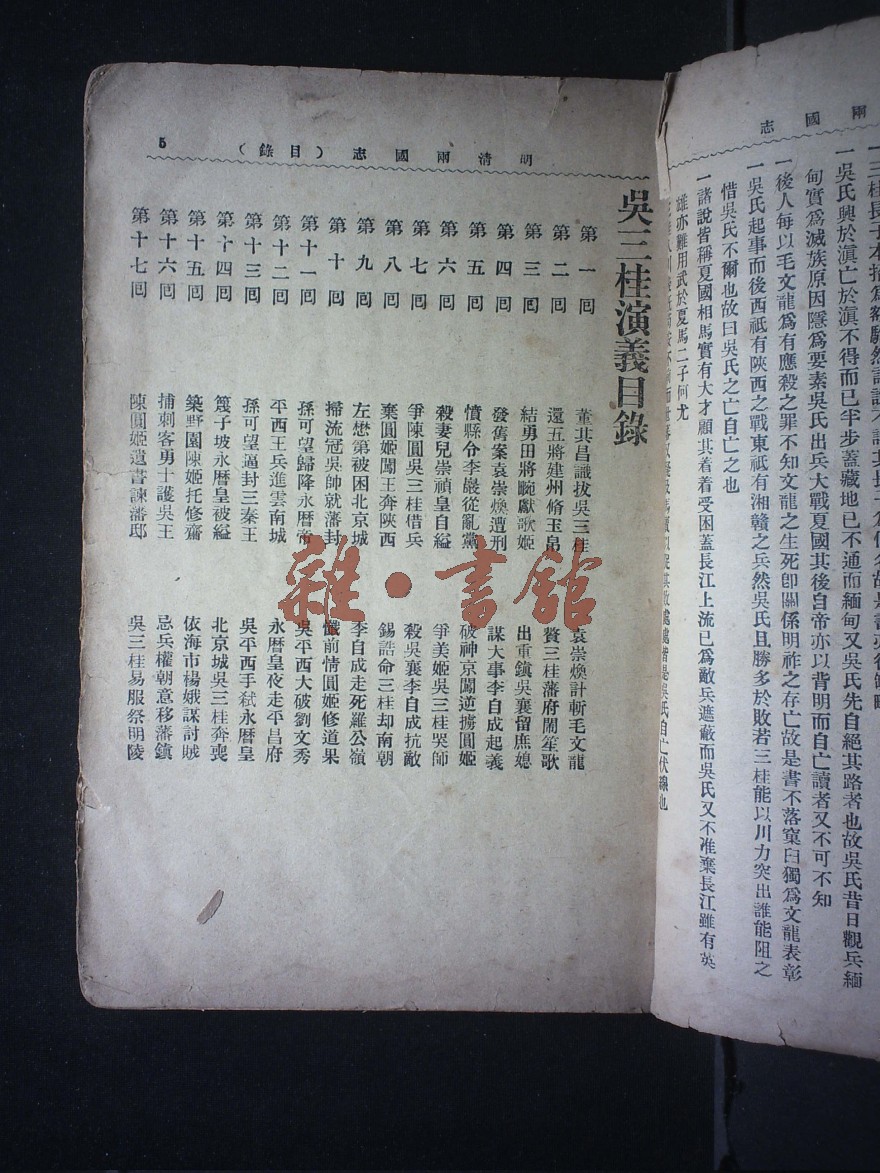 兩國志
一吳氏興於滇亡於滇不得而已半步蓋藏地已不通而緬甸又吳氏先自絕其路者也故吳氏昔日觀兵緬
甸實爲滅族原因隱爲要素吳氏出兵大戰夏國其後自帝亦以背明而自亡讀者又不可不知
一後人每以毛文龍爲有應殺之罪不知文龍之生死卽關係明祚之存亡故是書不落窠臼獨爲文龍表彰
一吳氏起事而後西祇有陝西之戰東祇有湘贛之兵然吳氏且勝多於敗若三桂能以川力突出誰能阻之
惜吳氏不爾也故曰吳氏之亡自亡之也
一諸說皆稱夏國相馬實有大才顧其着着受困蓋長江上流已爲敵兵遮蔽而吳氏又不准棄長江雖有英
雄亦難用武於夏馬二子何尤
明清兩國志(目錄) 5
吳三桂演義目錄
第一囘 董其昌識拔吳三桂 袁崇煥計斬毛文龍
第二囘 還五將建州脩玉帛 贅三桂藩府鬧笙歌
第三囘 結勇田將畹獻歌姬 出重鎭吳襄留庶媳
第四囘 發舊案袁崇煥遭刑 謀大事李自成起義
第五囘 憤縣令李嚴從亂黨 破神京闖逆擄圓姬
第六囘 殺妻兒崇禎皇自縊 爭美姬吳三桂哭師
第七囘 爭陳圓吳三桂借兵 殺吳襄李自成抗敵
第八囘 棄圓姬闖王奔陝西 錫誥命三桂却南朝
第九囘 左懋第被困北京城 李自成走死羅公嶺
第十囘 掃流冦吳帥就藩封 懺前情圓姬修道果
第十一囘 孫可望歸降永曆帝 吳平西大破劉文秀
第十二囘 平西王兵進雲南城 永曆皇夜走平昌府
第十三囘 孫可望逼封三秦王 吳平西手弒永曆皇
第十四囘 篾子坡永曆皇被縊 北京城吳三桂奔喪
第十五囘 築野園陳姬托修齋 依海市楊娥謀討賊
第十六囘 捕刺客勇士護吳王 忌兵權朝意移藩鎭
第十七囘 陳圓姬遺書諫藩邸 吳三桂易服祭明陵
雜·書館